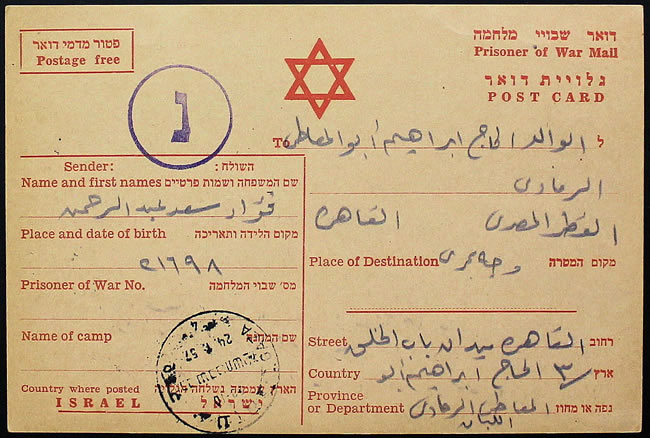 פטור מדמי דואר
Postage free
דואר שבויי מלחמה
Prisoner of War Mail
גלויית דואר
POST CARD
נ
To الوالد الحاج ابراهيم ابو المعاطى ל
الرمادى
القطر المصرى القاهرة
Place of Destination وجه بحرى מקום המטרה
Street القاهره ميدان باب الخلق רחוב
Country الحاج ابراهيم ابو ארץ
Province
or Department المعاطى الرمادى נפה או מחוז
اللبان
Sender: השולח:
Name and first names שם המשפחה ושמות פרטיים
فؤاد سعد عبد الرحمن
Place and date of birth מקום הלידה ותאריכה
٢١٦٩٨
Prisoner of War No. מס׳ שבוי המלחמה
Name of camp שם המחנה
Country where posted הארץ ממנה נשלחה
ISRAEL ישראל